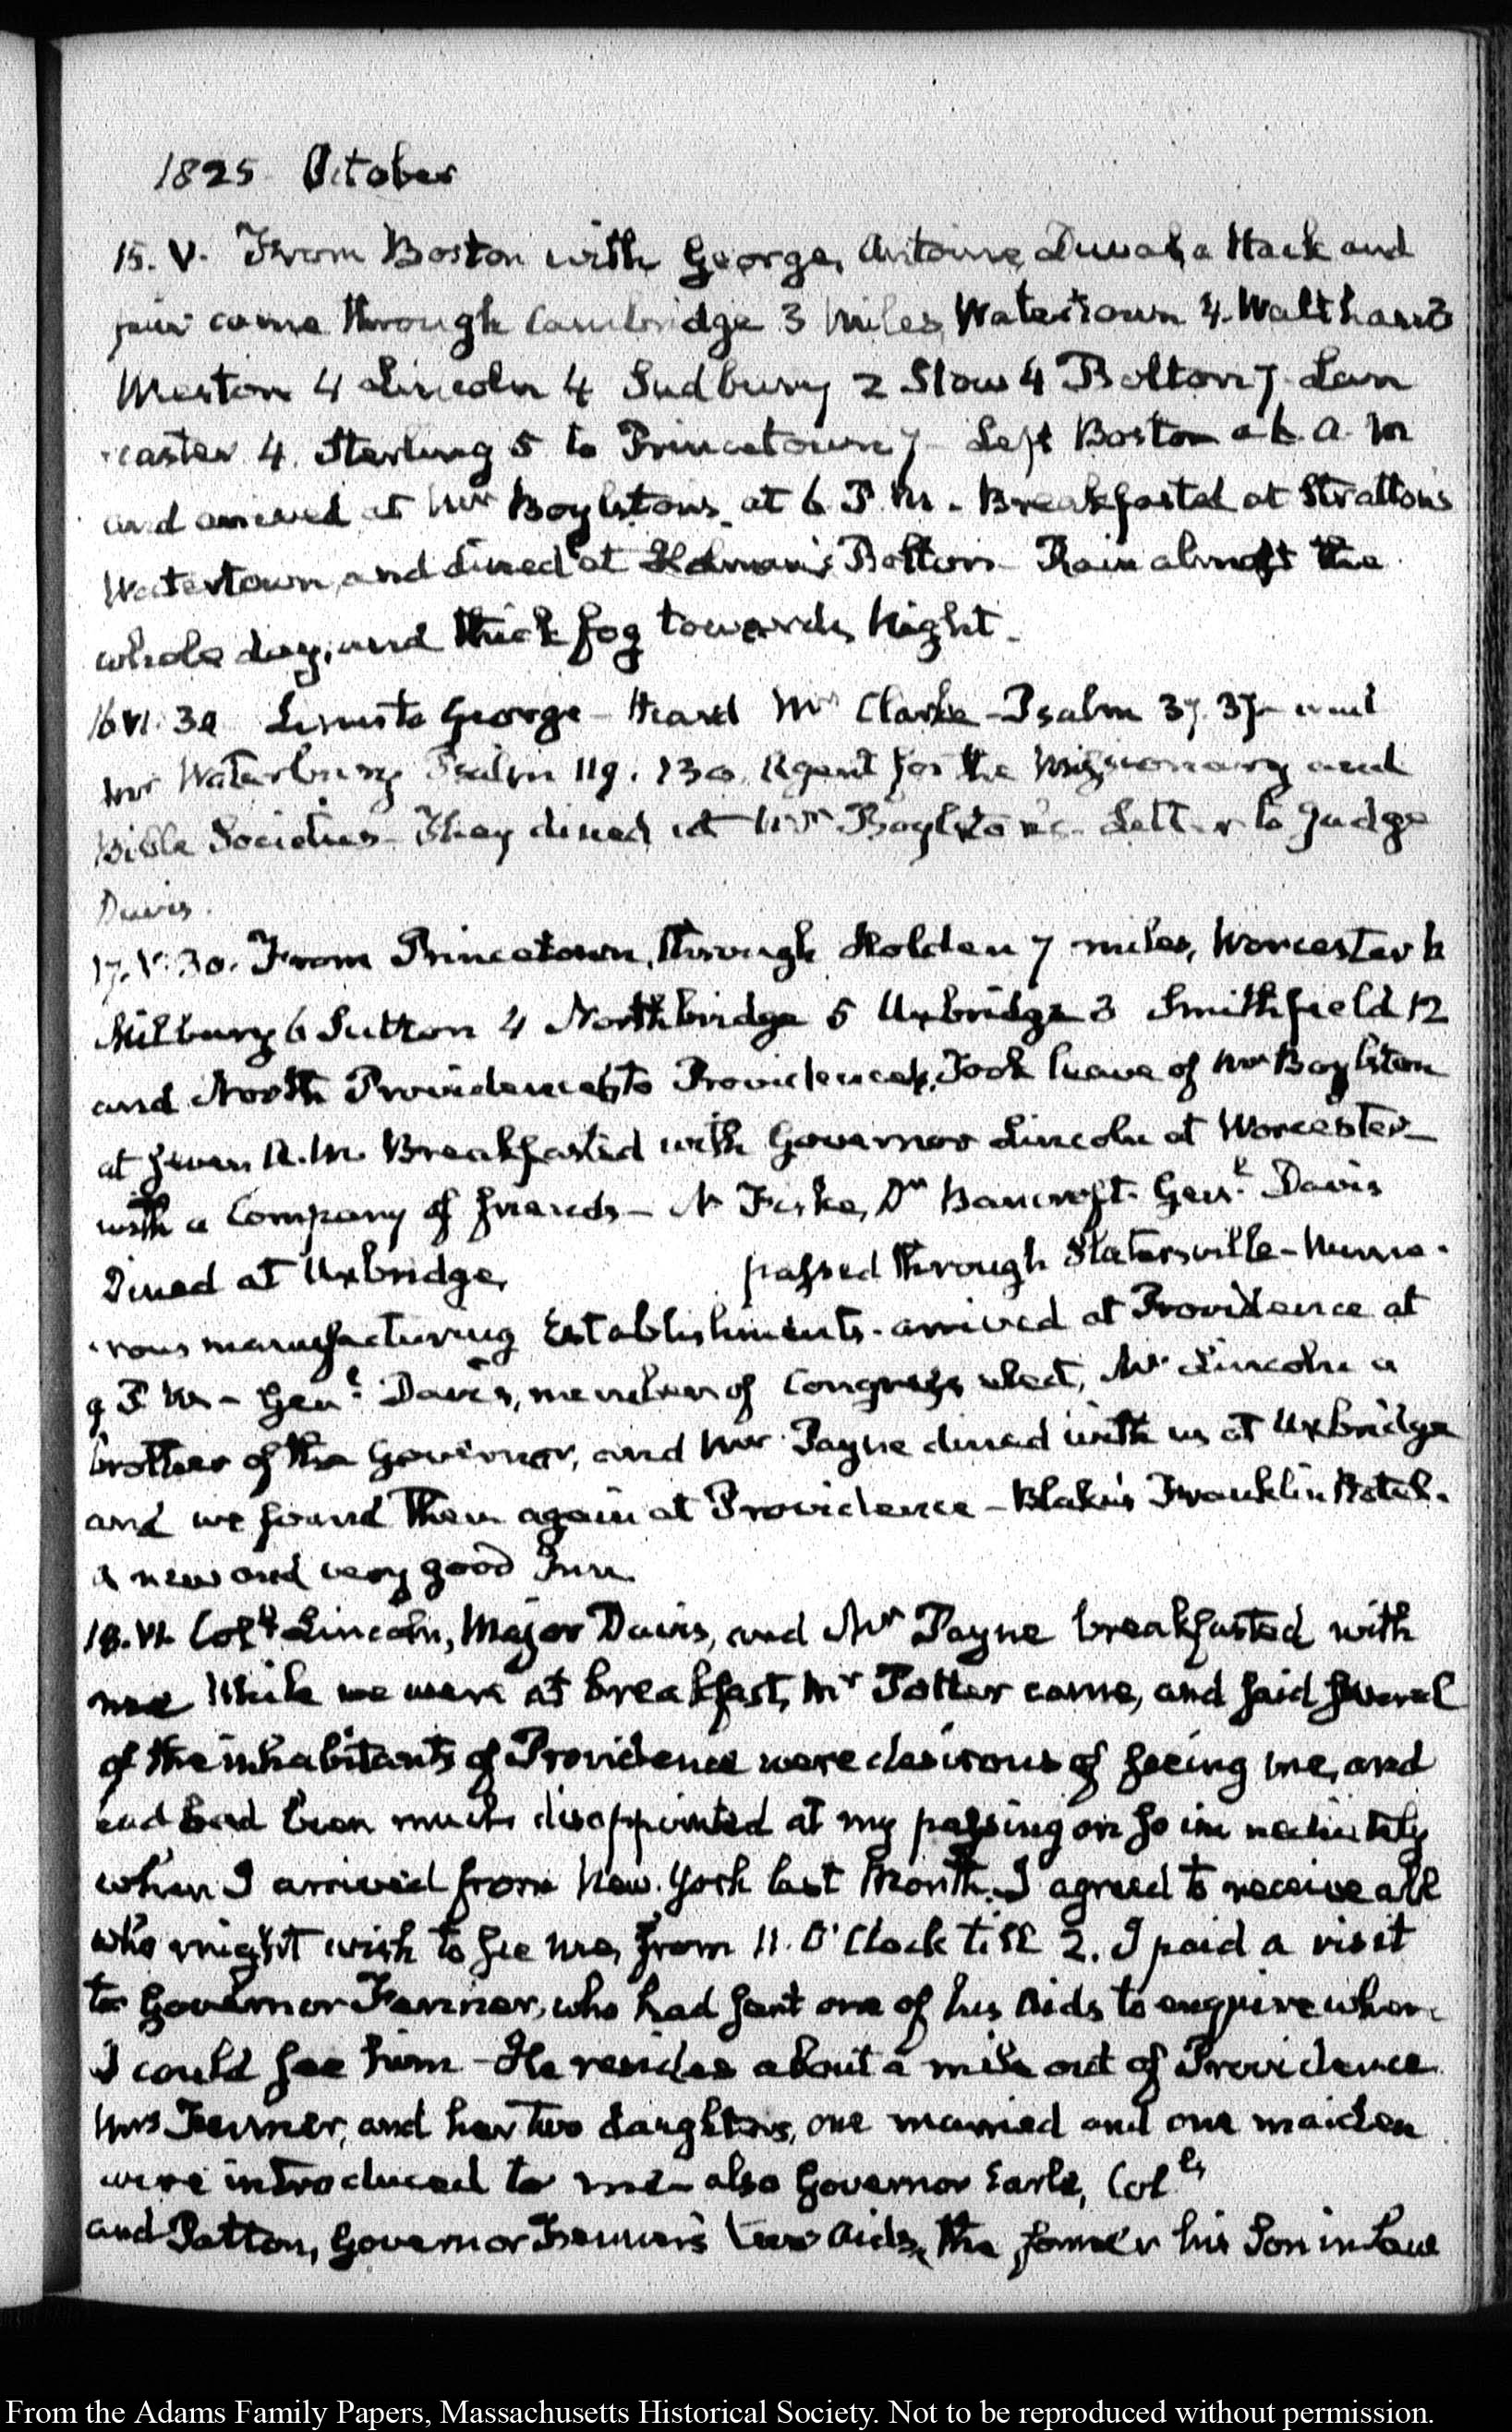 1825 October
15. V. From Boston with George, Antoine, a Hack and
pair came through Cambridge 3 miles, Watertown 4. Waltham 3
Weston 4 Lincoln 4 Sudbury 2 Stow 4 Bolton 7 Lan
caster 4. Sterling 5 to Princetown 7 Left Boston at A. M
and arrived at Mr Boylston's at 6 P. M. Breakfasted at Stratton's
Watertown, and dined at Holman's Bolton Rain almost the
whole day, and thick fog towards Night.
16. VI. 30 to George – Heard Mr Clarke – Psalm 37. 37 – and
Mr Waterbury Psalm 119. 130. Agent for the Missionary and
Bible Societies – They dined at Mr Boylston's. Letter to Judge
Davis.
17. V. 30. From Princetown, through Holden 7 miles, Worcester 6
Milbury 6 Sutton 4 Northbridge 5 Uxbridge 3 Smithfield 12
and North Providence to Providence 4. Took leave of Mr Boylston
at seven A. M. Breakfasted with Governor Lincoln at Worcester –
with a Company of friends – Fiske, Dr Bancroft. Genl. Davis
Dined at Uxbridge, passed through Slatersville – Nume-
rous manufacturing Establishments. arrived at Providence at
9 P M – Genl. Davis, member of Congress elect, Mr Lincoln a
brother of the Governor, and Mr Payne dined with us at Uxbridge
and we found them again at Providence – Blake's Franklin Hotel.
a new and very good Inn.
18. VI. Coll Lincoln, Major Davis, and Mr Payne breakfasted with
me While we were at breakfast, Mr Potter came, and said several
of the inhabitants of Providence were desirous of seeing me, and
had been much disappointed at my passing on so immediately
when I arrived from New York last Month. I agreed to receive all
who might wish to see me, from 11. O'Clock till 2. I paid a visit
to Governor Fenner, who had sent one of his Aids to enquire when
I could see him – He resides about a mile out of Providence.
Mrs Fenner, and her two daughters, one married and one maiden
were introduced to me – also Governor Earle, Colls
and Patton, Governor Fenner's two Aids, the former his Son in Law
From the Adams Family Papers, Massachusetts Historical Society. Not to be reproduced without permission.